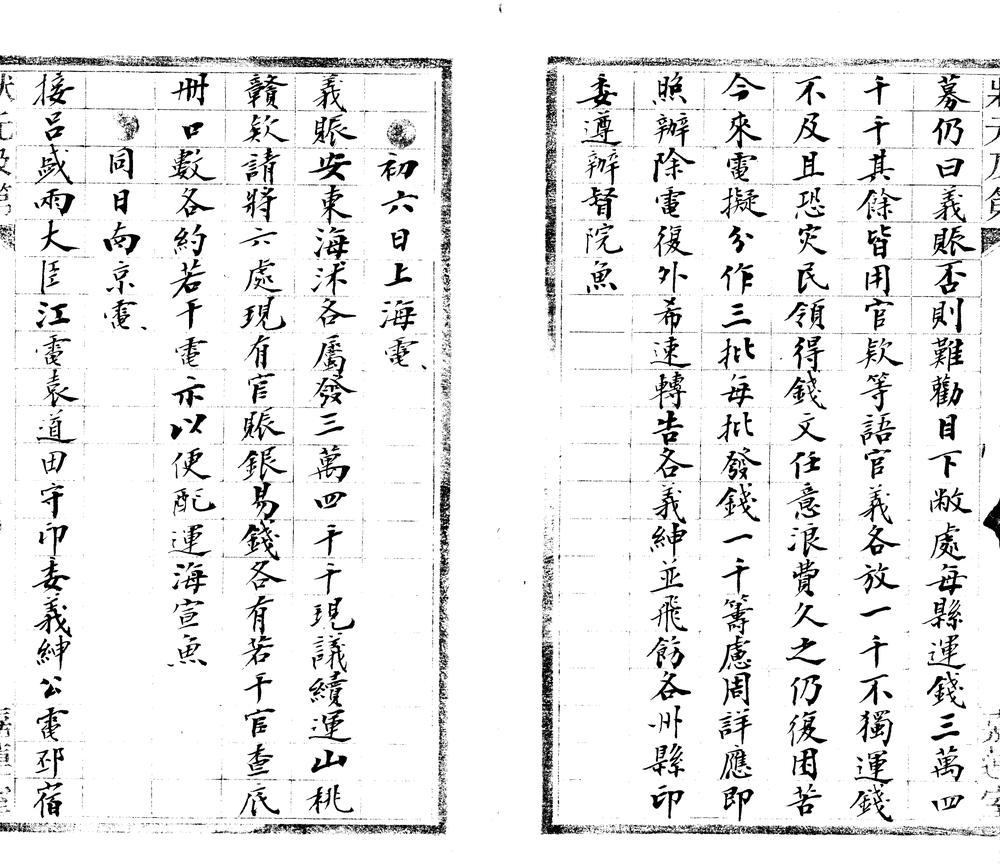 募仍曰義賑否則難勸目下敝處每縣運錢三萬四
千千其餘皆用官欵等語官義各放一千不獨運錢
不及且恐灾民領得錢文任意浪費久之仍復困苦
今來電擬分作三批每批發錢一千籌慮周詳應即
照辦除電復外希速轉告各義紳並飛飭各州縣印
委遵辦督院魚
初六日上海電、
義賑安東海沭各屬發三萬四千千現議續運山桃
贛欵請將六處現有官賑銀易錢各有若干官查底
冊口數各約若干電示以便配運海宣魚
同日南京電、
接呂盛兩大臣江電袁道田守印委義紳公電邳宿